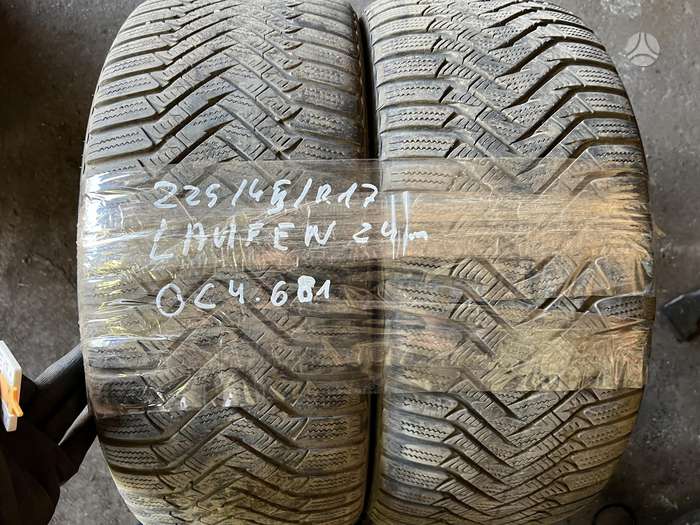 225/45/R17
LAUFEN 24m
OC4.681